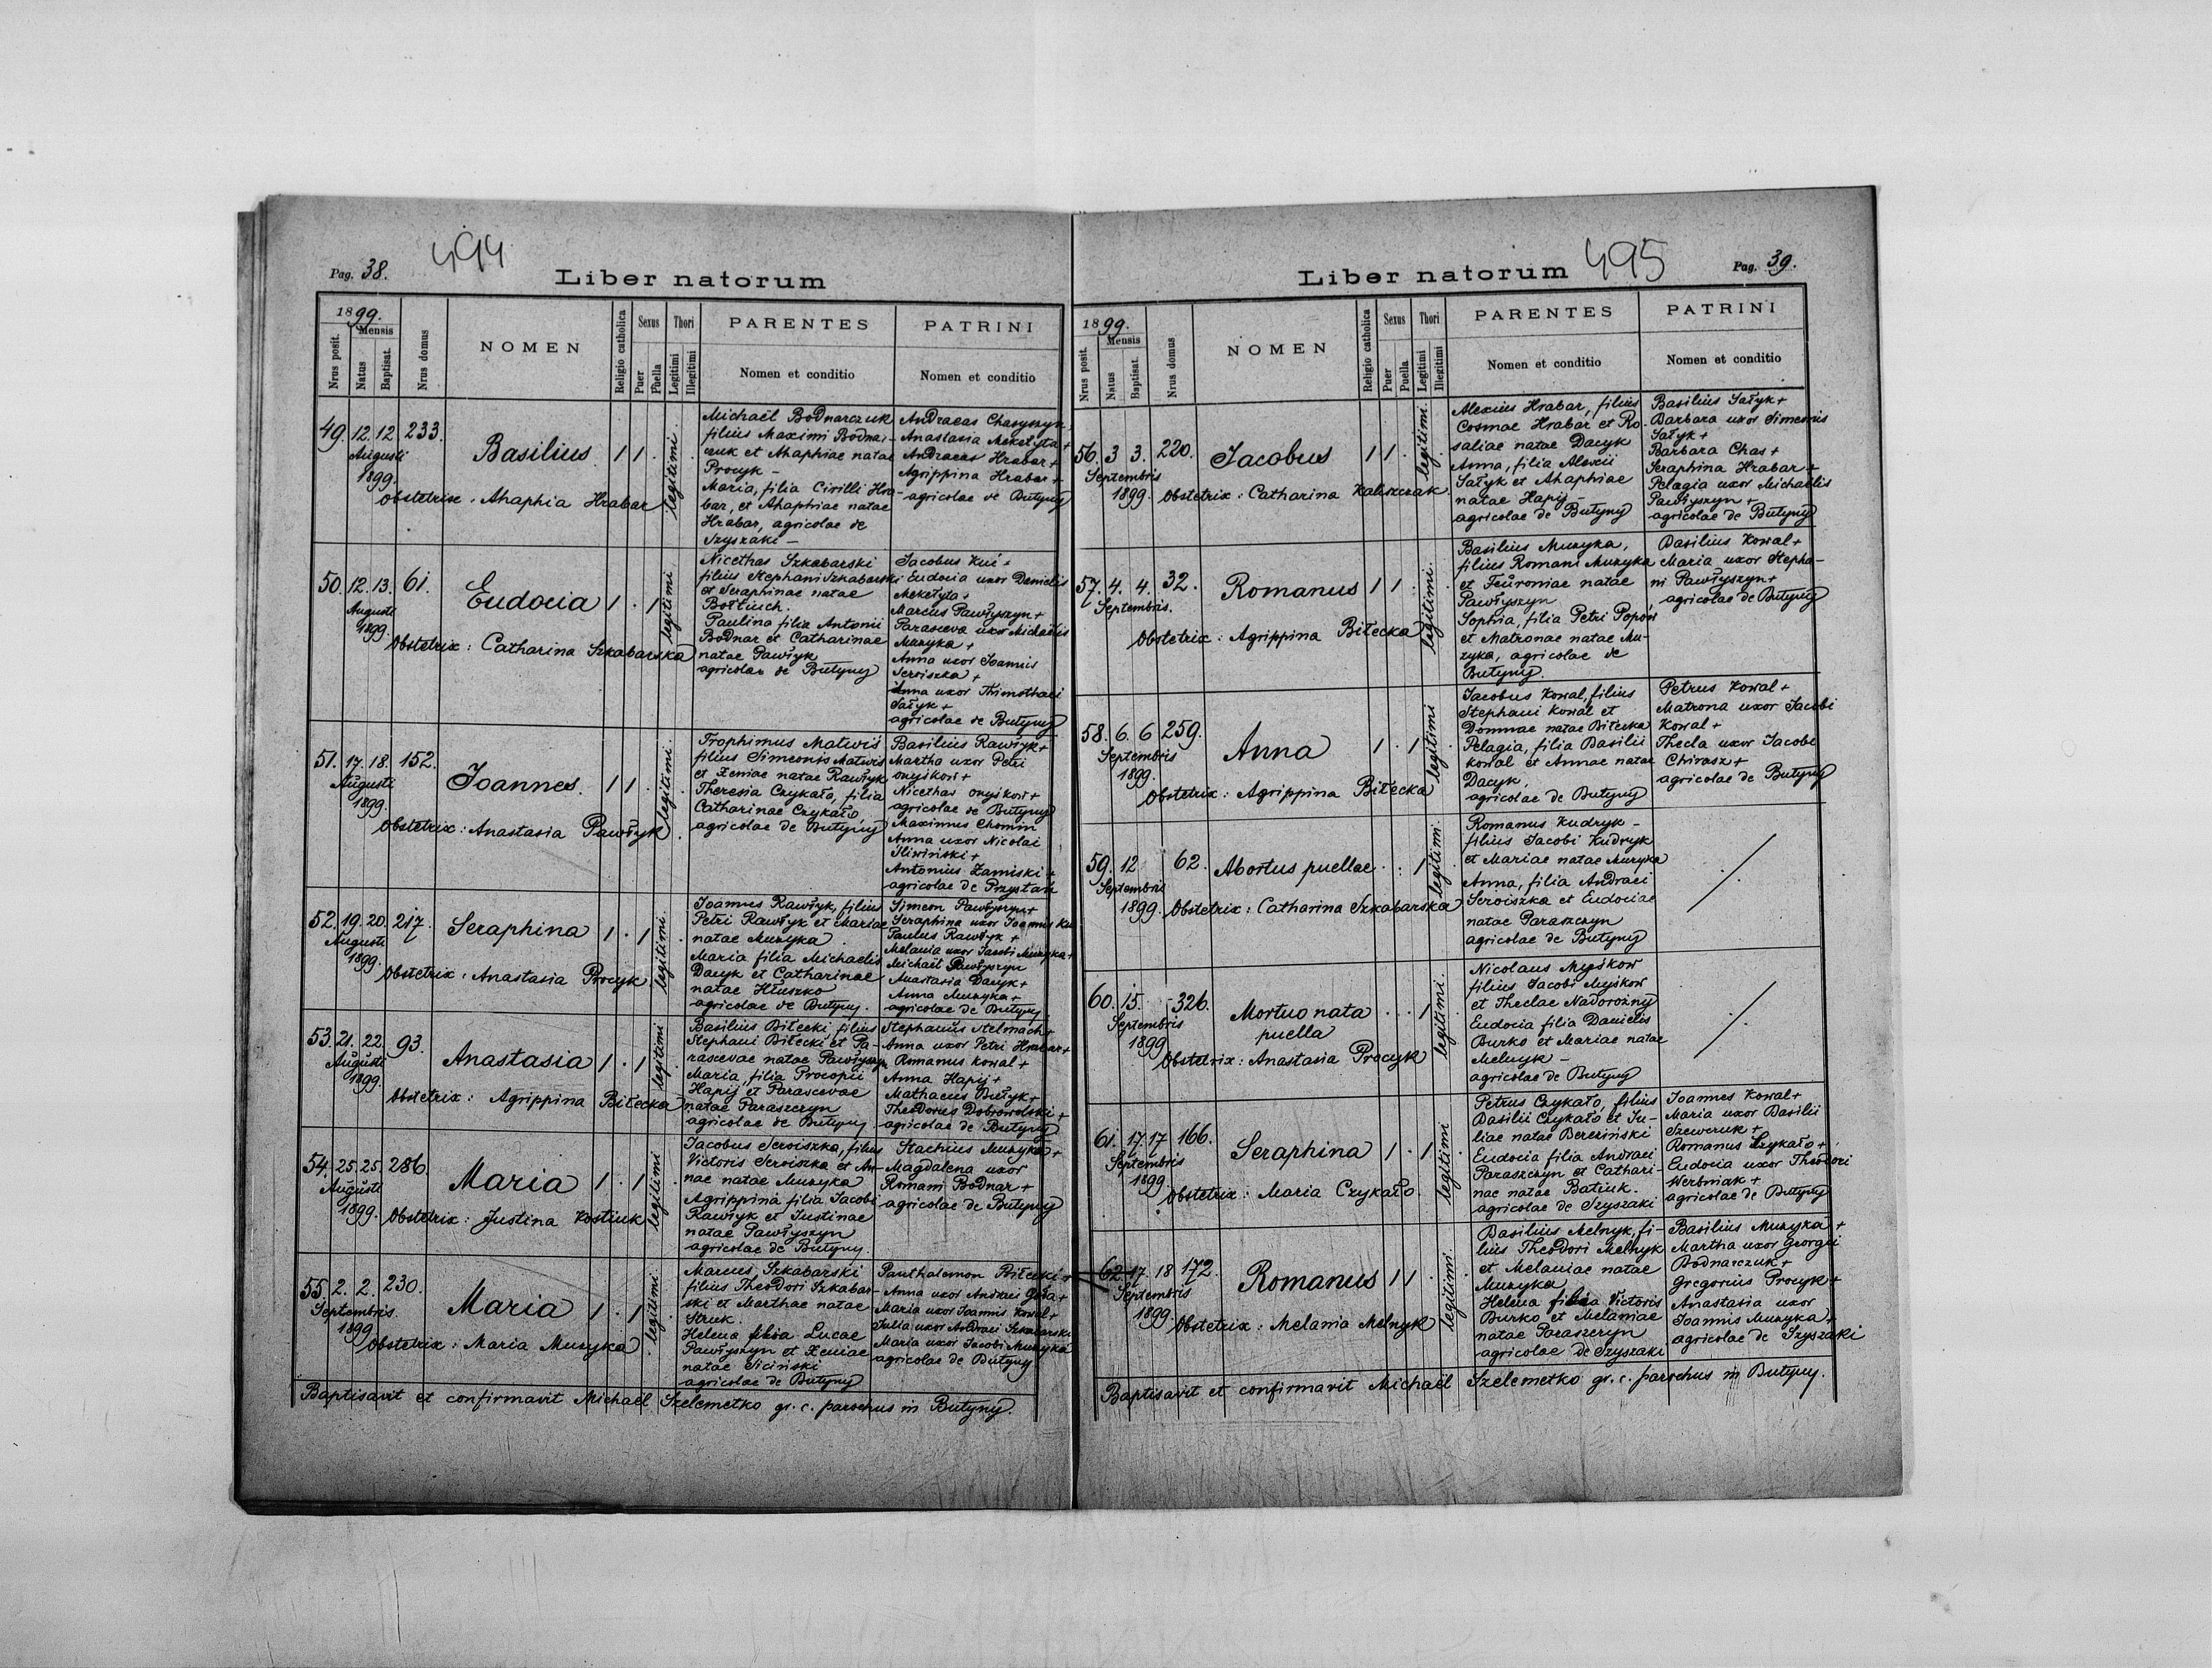 Pag. 38.
494
Liber natorum
1899.
Nrus posit.
Mensis
Natus
Baptisat.
Nrus domus
NOMEN
Religio catholica
Sexus
Puer
Puella
Thori
Legitimi
Illegitimi
PARENTES
Nomen et conditio
PATRINI
Nomen et conditio
49. 12. 12 233.
Augusti
1899.
Basilius 1 1 . legitimi.
Obstetrix: Ahaphia Hrabar
Michaël Bodnarczuk
filius Maximi Bodnar-
czuk et Ahaphiae natae
Procyk -
Maria, filia Cirilli Hra-
bar, et Ahaphiae natae
Hrabar, agricolae de
Szyszaki -
Andraeas Charyszyn
Anastasia Mekełyta +
Andraeas Hrabar +
Agrippina Hrabar +
agricolae de Butyny
50. 12. 13. 61.
Augusti
1899.
Eudocia 1 . 1 legitimi
Obstetrix: Catharina Szkabarska
Nicethas Szkabarski
filius Stephani Szkabarski
et Seraphinae natae
Bołtiuch.
Paulina filia Antonii
Bodnar et Catharinae
natae Pawłyk
agricolae de Butyny
Jacobus Kuć +
Eudocia uxor Danielis
Mekełyta +
Marcus Pawłyszyn +
Parasceva uxor Michaëlis
Muzyka +
Anna uxor Joannis
Seroiszka +
Anna uxor Thimothaei
Sałyk +
agricolae de Butyny
51. 17. 18. 152.
Augusti
1899.
Joannes. 1 1 . legitimi.
Obstetrix: Anastasia Pawłyk
Trophimus Matwiś
filius Simeonis Matwiś
et Xeniae natae Rawłyk
Theresia Czykało, filia
Catharinae Czykało,
agricolae de Butyny
Basilius Rawłyk +
Martha uxor Petri
Onyśkow +
Nicethas Onyśkow +
agricolae de Butyny
Maximus Chomin
Anna uxor Nicolai
Śliwiński +
Antonius Zamiski +
agricolae de Przystań
52. 19. 20. 217.
Augusti
1899.
Seraphina 1 . 1 legitimi.
Obstetrix: Anastasia Procyk
Joannes Rawłyk, filius
Petri Rawłyk et Mariae
natae Muzyka
Maria filia Michaelis
Dacyk et Catharinae
natae Hłuszko
agricolae de Butyny.
Simeon Pawłyszyn +
Seraphina uxor Joannis Kuć
Paulus Rawłyk +
Melania uxor Jacobi Muzyka +
Michaël Pawłyszyn
Anastasia Dacyk +
Anna Muzyka +
agricolae de Butyny
53. 21. 22. 93.
Augusti
1899.
Anastasia 1 . 1 legitimi
Obstetrix: Agrippina Biłecka
Basilius Biłecki filius
Stephani Biłecki et Pa-
rascevae natae Pawłyszyn
Maria, filia Procopii
Hapij et Parascevae
natae Paraszczyn
agricolae de Butyny
Stephanus Stelmach +
Anna uxor Petri Hrabar +
Romanus Kowal +
Anna Hapij +
Mathaeus Butyk +
Theodorus Dobrowolski +
agricolae de Butyny
54. 25. 25. 286.
Augusti
1899.
Maria 1 . 1 legitimi
Obstetrix: Justina Kostiuk
Jacobus Seroiszka, filius
Victoris Seroiszka et An-
nae natae Muzyka
Agrippina filia Jacobi
Rawłyk et Justinae
natae Pawłyszyn
agricolae de Butyny.
Stachius Muzyka +
Magdalena uxor
Romani Bodnar +
agricolae de Butyny
55. 2. 2. 230.
Septembris.
1899
Maria 1 . 1 legitimi.
Obstetrix: Maria Muzyka
Marcus Szkabarski
filius Theodori Szkabar-
ski et Marthae natae
Struk.
Helena filia Lucae
Pawłyszyn et Xeniae
natae Siciński
agricolae de Butyny
Panthalemon Biłecki +
Anna uxor Andraei
Maria uxor Joannis Kowal +
Julia uxor Andraei Szkabarski
Maria uxor Jacobi Muzyka
agricolae de Butyny
Baptisavit et confirmavit Michaël Szelemetko gr. c. parochus in Butyny.
Liber natorum
495
Pag. 39.
1899.
Nrus posit.
Mensis
Natus
Baptisat.
Nrus domus
NOMEN
Religio catholica
Sexus
Puer
Puella
Thori
Legitimi
Illegitimi
PARENTES
Nomen et conditio
PATRINI
Nomen et conditio
56. 3 3. 220.
Septembris
1899.
Jacobus 1 1 . legitimi.
Obstetrix: Catharina Kaliszczak
Alexius Hrabar, filius
Cosmae Hrabar et Ro-
saliae natae Dacyk
Anna, filia Alexii
Sałyk et Ahaphiae
natae Hapij -
agricolae de Butyny
Basilius Sałyk +
Barbara uxor Simeonis
Sałyk +
Barbara Chas +
Seraphina Hrabar +
Pelagia uxor Michaëlis
Pawłyszyn +
agricolae de Butyny
57. 4. 4. 32.
Septembris.
Romanus 1 1 . legitimi.
Obstetrix: Agrippina Biłecka
Basilius Muzyka,
filius Romani Muzyka
et Feuroniae natae
Pawłyszyn
Sophia, filia Petri Popów
et Matronae natae Mu-
zyka, agricolae de
Butyny.
Basilius Kowal +
Maria uxor Stepha-
ni Pawłyszyn +
agricolae de Butyny
58. 6. 6 259.
Septembris
1899.
Anna 1 . 1 legitimi
Obstetrix: Agrippina Biłecka
Jacobus Kowal, filius
Stephani Kowal et
Domnae natae Biłecka
Pelagia, filia Basilii
Kowal et Annae natae
Dacyk,
agricolae de Butyny
Petrus Kowal +
Matrona uxor Jacobi
Kowal +
Thecla uxor Jacobi
Chirasz +
agricolae de Butyny
59. 12 62.
Septembris
1899.
Abortus puellae . . 1 legitimi.
Obstetrix: Catharina Szkabarska
Romanus Kudryk -
filius Jacobi Kudryk
et Mariae natae Muzyka
Anna, filia Andraei
Seroiszka et Eudociae
natae Paraszczyn
agricolae de Butyny
60. 15. - 326.
Septembris
1899
Mortuo nata
puella . . 1 legitimi.
Obstetrix: Anastasia Procyk
Nicolaus Myśkow
filius Jacobi Myśkow
et Theclae Nadorożny
Eudocia filia Danielis
Burko et Mariae natae
Melnyk -
agricolae de Butyny
61. 17. 17 166.
Septembris
1899.
Seraphina 1 . 1 legitimi
Obstetrix: Maria Czykało.
Petrus Czykało, filius
Basilii Czykało et Ju-
liae natae Bereziński
Eudocia filia Andraei
Paraszczyn et Cathari-
nae natae Batiuk.
agricolae de Szyszaki
Joannes Kowal +
Maria uxor Basilii
Szewczuk +
Romanus Czykało +
Eudocia uxor Theodori
Werbniak +
agricolae de Butyny
62. 17 18 172.
Septembris
1899.
Romanus 1 1 . legitimi.
Obstetrix: Melania Melnyk
Basilius Melnyk, fi-
lius Theodori Melnyk
et Melaniae natae
Muzyka
Helena filia Victoris
Burko et Melaniae
natae Paraszczyn
agricolae de Szyszaki
Basilius Muzyka +
Martha uxor Georgii
Bodnarczuk +
Gregorius Procyk +
Anastasia uxor
Joannis Muzyka +
agricolae de Szyszaki
Baptisavit et confirmavit Michaël Szelemetko gr. c. parochus in Butyny.